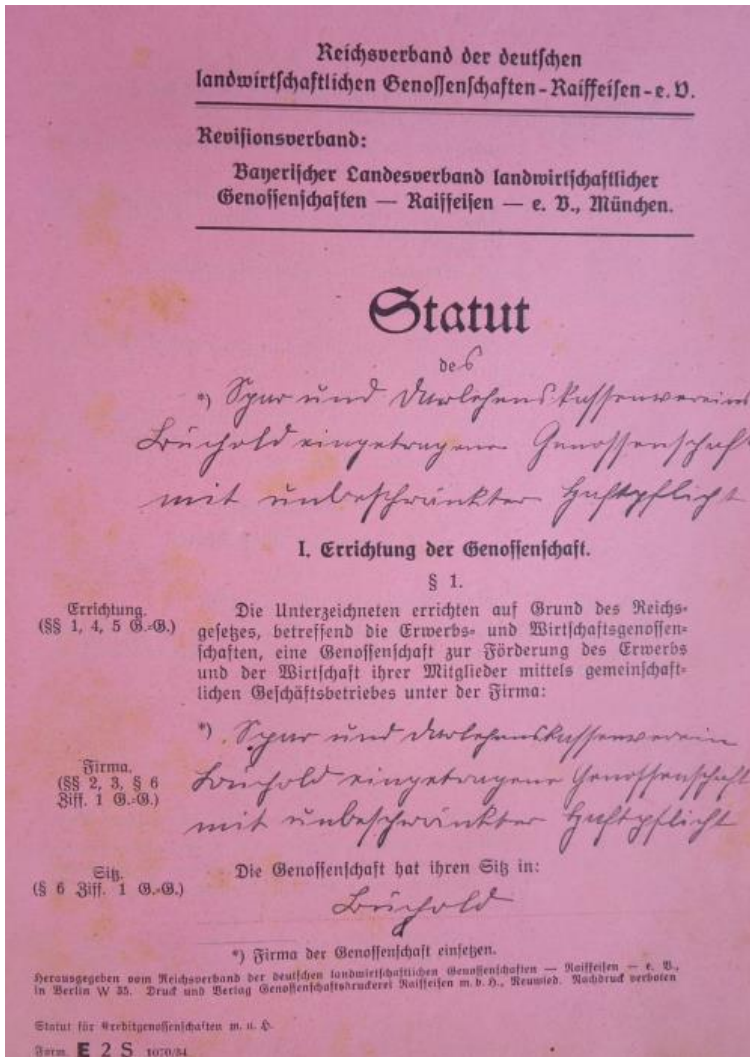 Reichsverband der deutschen
landwirtschaftlichen Genossenschaften-Raiffeisen-e. V.
Revisionsverband:
Bayerischer Landesverband landwirtschaftlicher
Genossenschaften — Raiffeisen — e. V., München.
Statut
des
*) Spar und Darlehenskassenvereins
Büchold eingetragene Genossenschaft
mit unbeschränkter Haftpflicht
I. Errichtung der Genossenschaft.
§ 1.
Errichtung.
(§§ 1, 4, 5 G.-G.)
Die Unterzeichneten errichten auf Grund des Reichs-
gesetzes, betreffend die Erwerbs- und Wirtschaftsgenossen-
schaften, eine Genossenschaft zur Förderung des Erwerbs
und der Wirtschaft ihrer Mitglieder mittels gemeinschaft-
lichen Geschäftsbetriebes unter der Firma:
Firma.
(§§ 2, 3, § 6
Ziff. 1 G.-G.)
*) Spar und Darlehenskassenverein
Büchold eingetragene Genossenschaft
mit unbeschränkter Haftpflicht
Sitz.
(§ 6 Ziff. 1 G.-G.)
Die Genossenschaft hat ihren Sitz in:
Büchold
*) Firma der Genossenschaft einsetzen.
Herausgegeben vom Reichsverband der deutschen landwirtschaftlichen Genossenschaften — Raiffeisen — e. V.,
in Berlin W 35. Druck und Verlag Genossenschaftsdruckerei Raiffeisen m. b. H., Neuwied. Nachdruck verboten
Statut für Kreditgenossenschaften m. u. H.
Form. E 2 S 1070/34